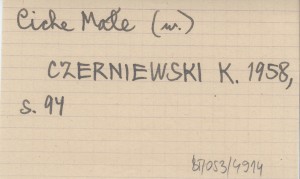 Ciche Małe (w.)
CZERNIEWSKI K. 1958,
s. 94
BJ/053/4914